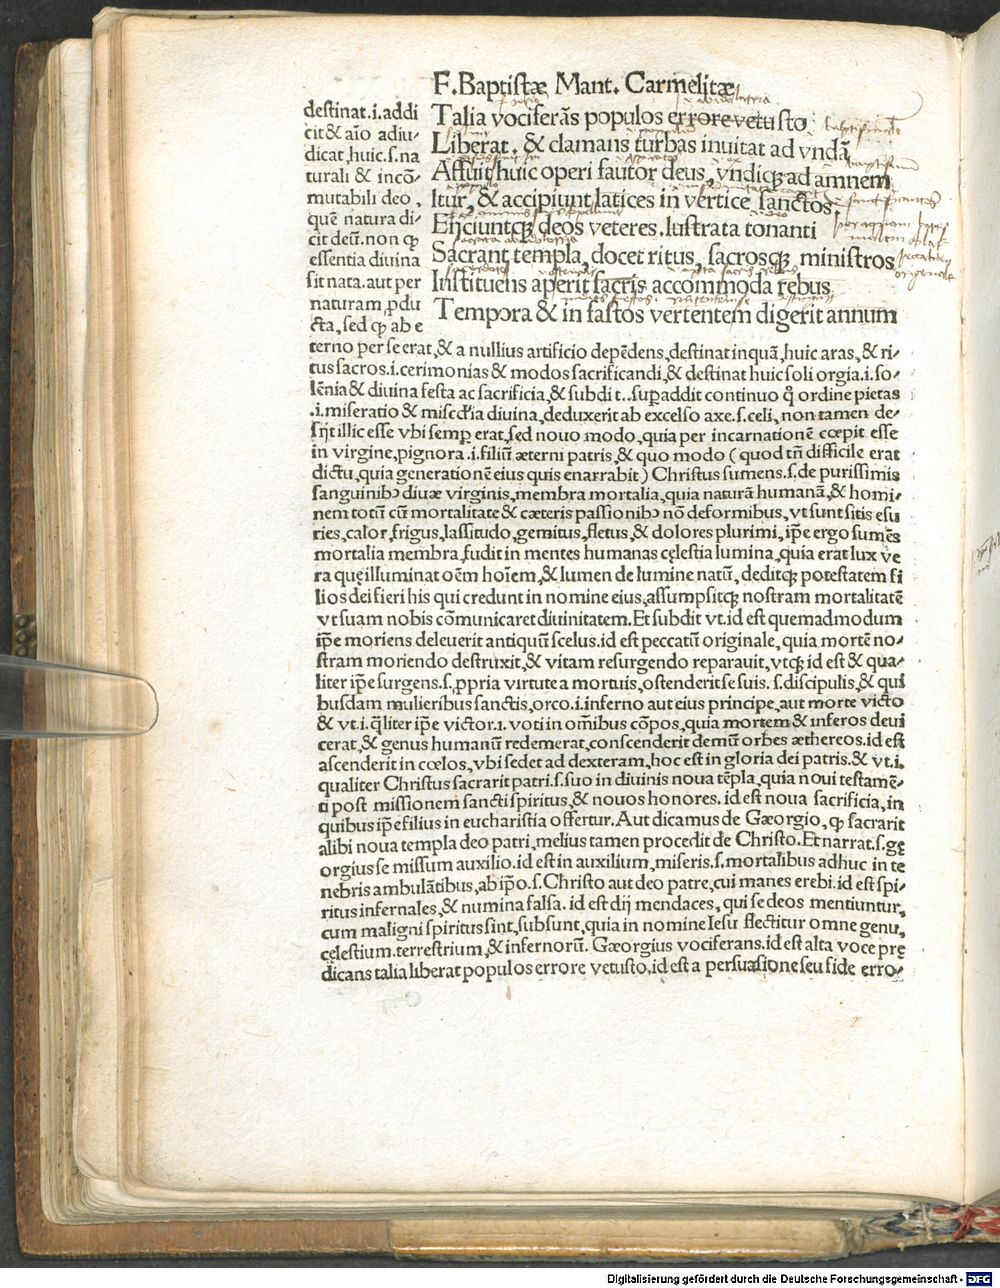 F. Baptistæ Mant. Carmelitæ
Talia vociferãs populos errore vetusto
Liberat. & clamans turbas inuitat ad vndã
Affuit huic operi fautor deus, vndiqꝫ ad amnem
Itur, & accipiunt latices in vertice sanctos.
Eijciuntqꝫ deos veteres. lustrata tonanti
Sacrant templa, docet ritus, sacrosqꝫ ministros
Instituens aperit sacris accommoda rebus
Tempora & in fastos vertentem digerit annum
destinat .i. addi
cit & aĩo adiu-
dicat, huic .s. na
turali & incõ-
mutabili deo,
quẽ natura di-
cit deũ. non qꝫ
essentia diuina
sit nata. aut per
naturam, ꝓdu
cta, sed qꝫ ab e
terno per se erat, & a nullius artificio depẽdens, destinat inquã, huic aras, & ri-
tus sacros .i. cerimonias & modos sacrificandi, & destinat huic soli orgia .i. so-
lẽnia & diuina festa ac sacrificia, & subdit .. suꝑaddit continuo q̃ ordine pietas
.i. miseratio & miscdia diuina, deduxerit ab excelso axe .s. celi, non tamen de-
sijt illic esse vbi semꝑ erat, sed nouo modo, quia per incarnationẽ cœpit esse
in virgine, pignora .i. filiũ æterni patris, & quo modo ( quod tñ difficile erat
dictu, quia generationẽ eius quis enarrabit ) Christus sumens .s. de purissimis
sanguinibꝰ diuæ virginis, membra mortalia, quia naturã humanã, & homi-
nem totũ cũ mortalitate & cæteris passionibꝰ nõ deformibus, vt sunt sitis esu
ries, calor, frigus, lassitudo, gemitus, fletus, & dolores plurimi, ip̃e ergo sumẽs
mortalia membra, fudit in mentes humanas cęlestia lumina, quia erat lux ve
ra quę illuminat oẽm hoĩem, & lumen de lumine natũ, deditqꝫ potestatem fi
lios dei fieri his qui credunt in nomine eius, assumpsitqꝫ nostram mortalitatẽ
vt suam nobis cõmunicaret diuinitatem. Et subdit vt. id est quemadmodum
ip̃e moriens deleuerit antiquũ scelus. id est peccatũ originale, quia mortẽ no-
stram moriendo destruxit, & vitam resurgendo reparauit, vtqꝫ id est & qua-
liter ip̃e surgens .s. ꝓpria virtute a mortuis, ostenderit se suis .s. discipulis, & qui
busdam mulieribus sanctis, orco .i. inferno aut eius principe, aut morte victo
& vt .i. q̃liter ip̃e victor .i. voti in om̃ibus cõpos, quia mortem & inferos deui
cerat, & genus humanũ redemerat, conscenderit demũ orbes æthereos. id est
ascenderit in cœlos, vbi sedet ad dexteram, hoc est in gloria dei patris. & vt .i.
qualiter Christus sacrarit patri .s. suo in diuinis noua tẽpla, quia noui testamẽ-
ti post missionem sancti spiritus, & nouos honores. id est noua sacrificia, in
quibus ip̃e filius in eucharistia offertur. Aut dicamus de Gæorgio, qꝫ sacrarit
alibi noua templa deo patri, melius tamen procedit de Christo. Et narrat .s. gę
orgius se missum auxilio. id est in auxilium, miseris .s. mortalibus adhuc in te
nebris ambulãtibus, ab ip̃o .s. Christo aut deo patre, cui manes erebi. id est spi-
ritus infernales, & numina falsa. id est dij mendaces, qui se deos mentiuntur,
cum maligni spiritus sint, subsunt, quia in nomine Iesu flectitur omne genu,
cęlestium. terrestrium, & infernorũ. Gæorgius vociferans. id est alta voce prę
dicans talia liberat populos errore vetusto, id est a persuasione seu fide erro-
Digitalisierung gefördert durch die Deutsche Forschungsgemeinschaft - DFG